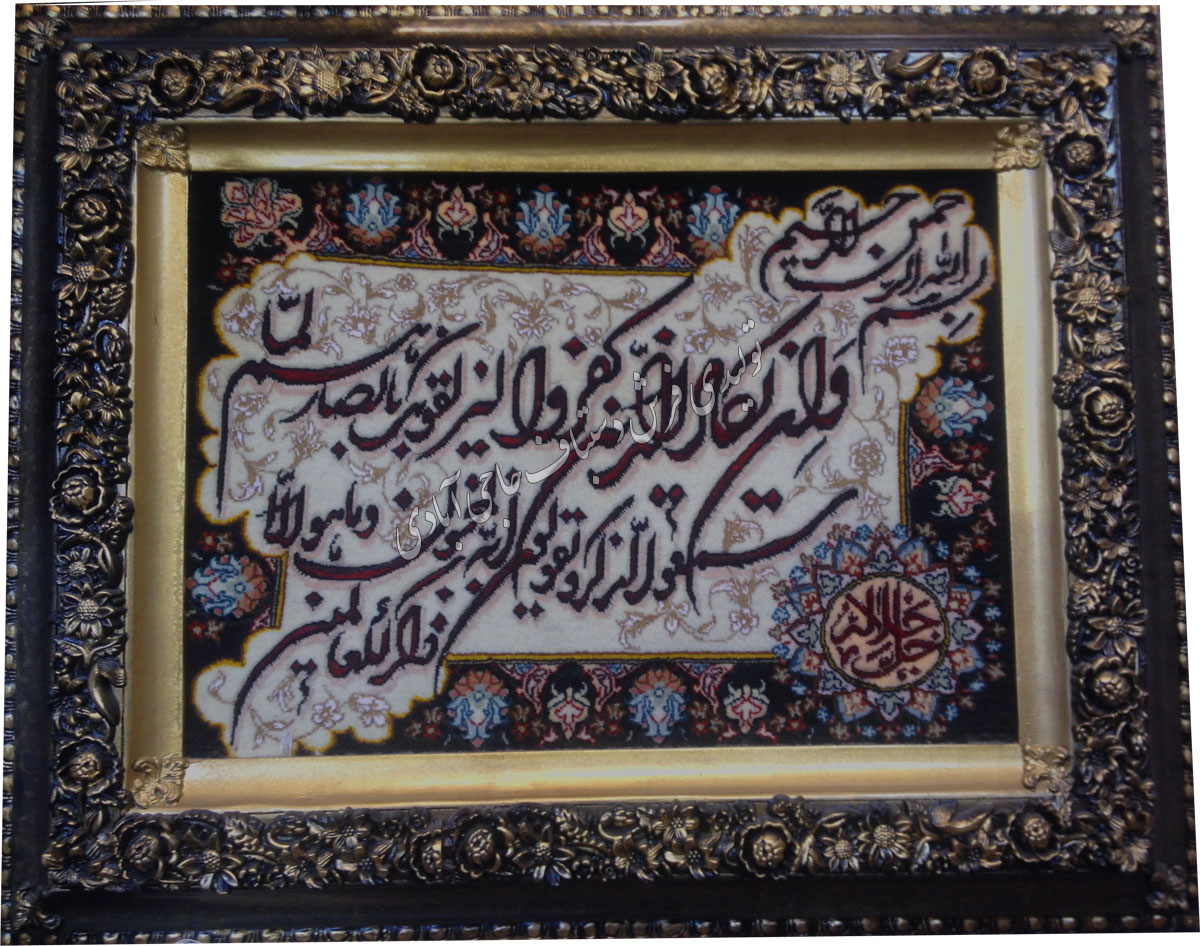 بسم الله الرحمن الرحیم
وَان یکاد الّذین کفروا لیزلقونک بابصارهم لمّا
سمعوا الذّکر و یقولون انّه لمجنون و ما هو الّا
ذکر للعالمین
جل جلاله
تولیدی فرش دستباف حاجی آبادی